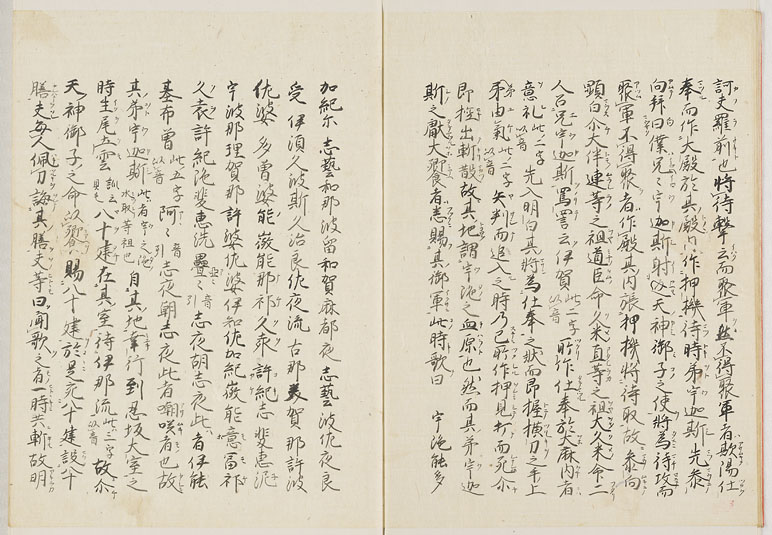 訶夫羅前也將待撃云而聚軍然不得聚軍者欺陽仕
奉而作大殿於其殿内作押機待時弟宇迦斯先参
向拜曰僕兄々宇迦斯射返天神御子之使將為待攻而
聚軍不得聚者作殿其内張押機將待取故参向
顕白尒大伴連等之祖道臣命久米直等之祖大久米命二
人召兄宇迦斯罵詈云伊賀此二字以音所作仕奉於大殿内者
意礼此二字以音先入明白其將為仕奉之状而即握横刀之手上
矛由氣此二字以音矢判而追入之時乃己所作押見打而死尒
即控出斬散故其地謂宇陁之血原也然而其弟宇迦
斯之獻大饗者悉賜其御軍此時歌曰 宇陁能多
加紀尓 志藝和那波留和賀麻都夜 志藝波佐夜良
受 伊須久波斯久治良佐夜流 古那美賀那許波
佐婆 多曽婆能微能那祁久乎 許紀志斐恵泥
宇波那理賀那許婆佐婆伊知佐加紀微能意冨祁
久袁許紀陁斐恵洗疊々音引 志夜胡志夜此者伊能
基布曽此五字以音 阿々音引 志夜朝志夜此者嘲咲者也故
其弟宇迦斯此者宇陁水取等祖也 自其地幸行到忍坂大室之
時生尾土雲訓云具毛八十建在其室待伊那流此三字以音故尒
天神御子之命以饗賜八十建於是宛八十建設八十
膳夫毎人佩刀誨其膳夫等曰聞歌之者一時共斬故明